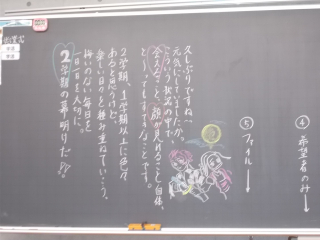 ④希望者のみ→
⑤ファイル→
久しぶりですね〜
元気にしてましたか。
こういう状況の中で、
会えること、顔が見れること自体、
とってもすてきなことです。
2学期、1学期以上に色々
あると思うけど、
楽しい日々を積み重ねていこう。
悔いのない毎日を
一日一日を大切に。
2学期の幕明けだ!!